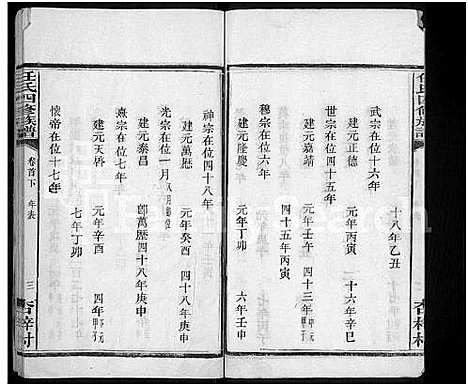 任氏四修族譜
十八年乙丑
武宗在位十六年
建元正德 元年丙寅 一十六年辛巳
世宗在位四十五年
建元嘉靖 元年壬午 四十三年甲子
四十五年丙寅
穆宗在位六年
建元隆慶 元年丁卯 六年壬申
神宗在位四十八年
建元萬歷 元年癸酉 四十八年庚申
光宗在位一月 八月即位
建元泰昌 即萬歷四十八年庚申
熹宗在位七年
建元天啓 元年辛酉 四年下元甲子
七年丁卯
懷帝在位十七年
任氏四修族譜 卷首下 年表 三 杏梓村